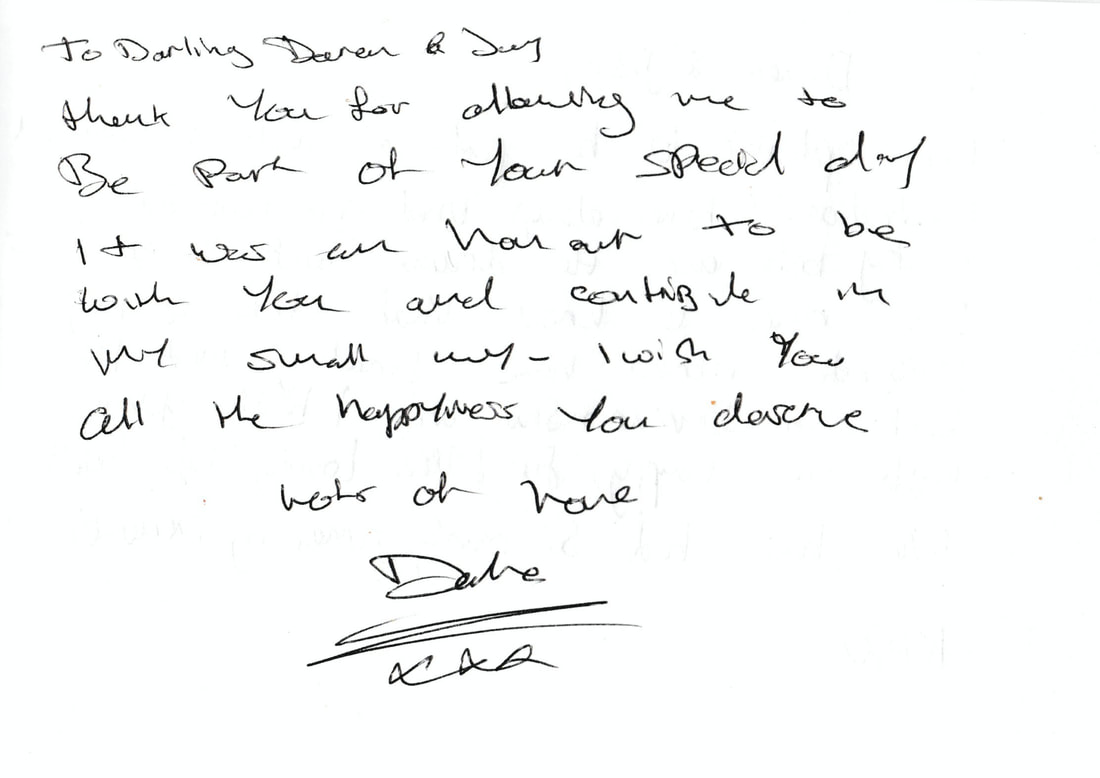 To Darling Daren & Jay
thank You for allowing me to
Be Part of Your special day
It was an honour to be
with You and contribute in
my small way - I wish You
all the happyness You deserve
lots of love
xxx